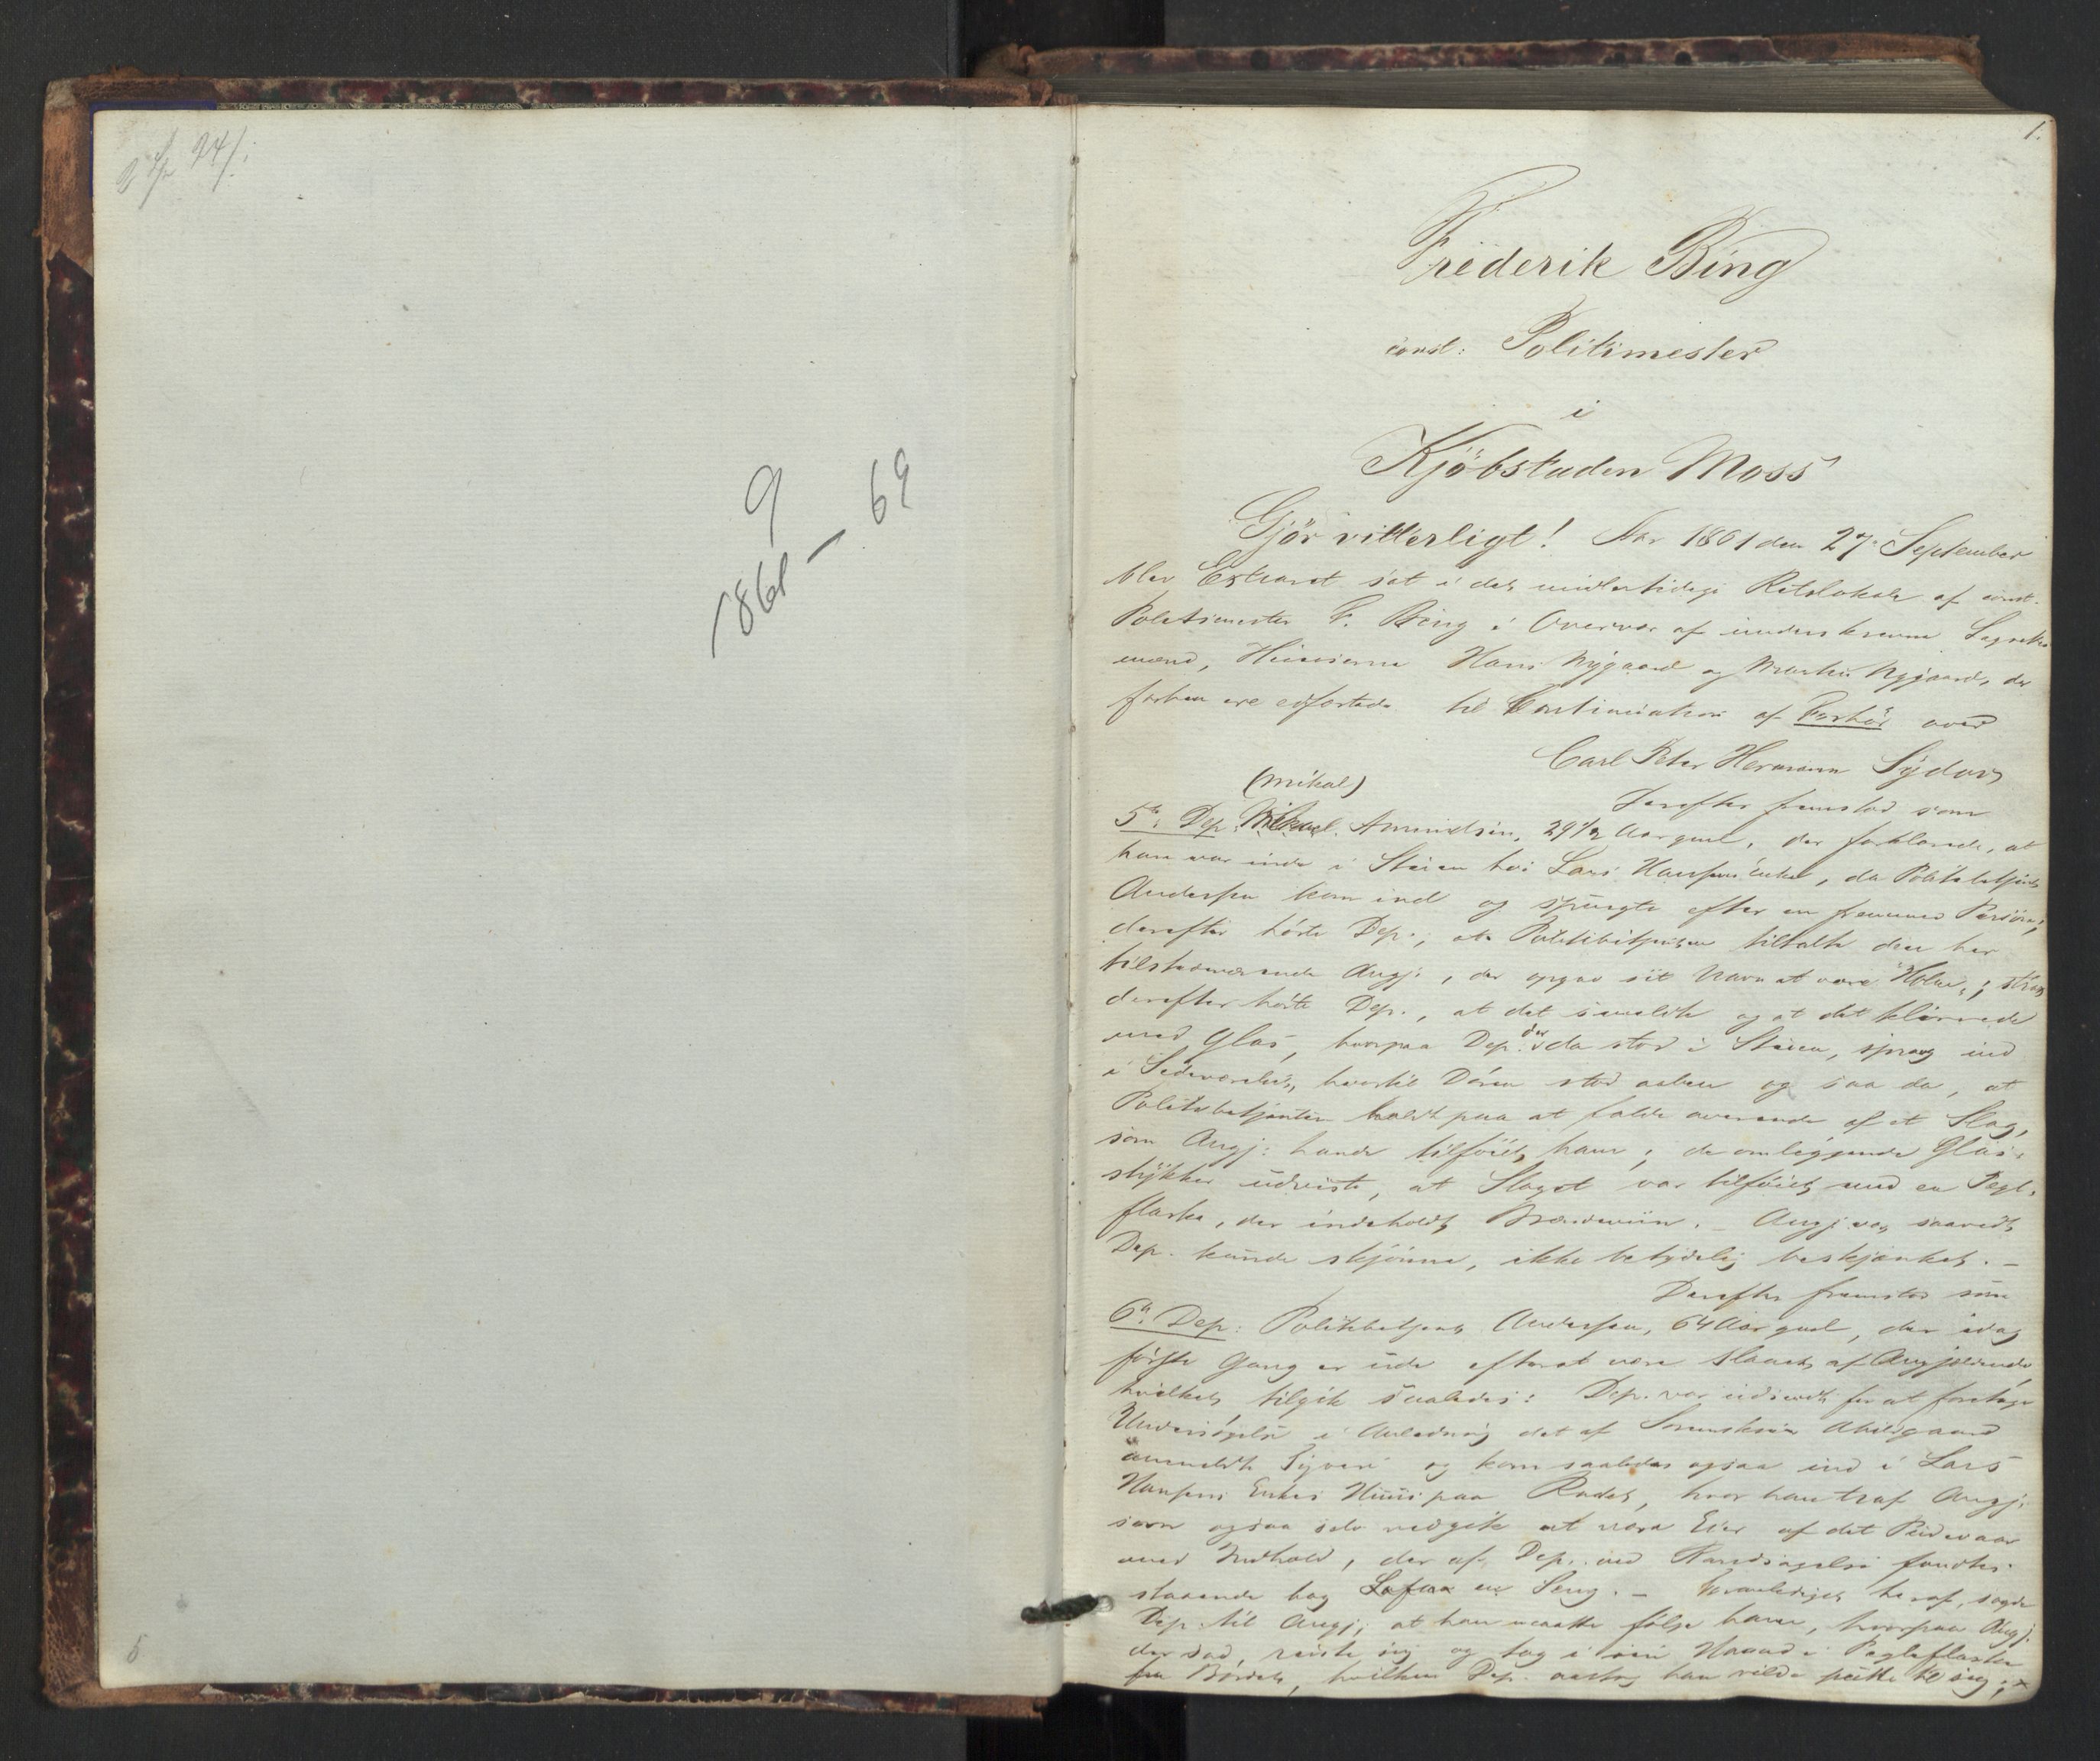 9
1861 – 69
5
1.
Frederik Bing
const: Politimester
i
Kjöbstaden Moss
Gjör vitterligt! Aar 1861 den 27. September
blev Extraret sat i det midlertidige Retslokale af const.
Politimester F. Bing i Overvær af underskrevne Lagrettes
mænd, Hans Nygaard og Martin Nygaard, der
forhen ere edfæstede til Continuation af Forhör over
Carl Peter Hermann Sydow
Derefter fremstod som
(Mikal)
5te Dep: Mikael Amundsen, 29 1/2 Aar gml, der forklarede, at
han var inde i Stuen hos Lars Hansens Enke, da Politibetjent
Andersen kom ind og spurgte efter en fremmed Person;
derefter hörte Dep., at Politibetjenten tiltalte den her
tilstedeværende Angj:, der opgav sit Navn at være Holm; strax
derefter hörte Dep., at det smeldte og at det klirrede
med Glas, hvorpaa Dep. der da stod i Stuen, sprang ind
i Sideværelset, hvortil Dören stod aaben og saa da, at
Politibetjenten holdt paa at falde overende af et Slag,
som Angj: havde tilföiet ham; de omliggende Glas-
stykker udviste, at Slaget var tilföiet med en Pægl.
flaske, der indeholdt Brændeviin. – Angj. var, saavidt
Dep. kunde skjönne, ikke betydelig beskjænket. –
Derefter fremstod som
6te Dep: Politibetjent Andersen, 64 Aar gml, der idag
förste Gang er ude efterat være slaaet af Angjældende
hvilket tilgik saaledes: Dep. var udsendt for at foretage
Undersögelse i Anledning det af Sorenskriver Abildgaard
anmeldte Tyveri og kom saaledes ogsaa ind i Lars
Hansens Enkes Huus paa Radet, hvor han traf Angj.
som ogsaa selv vedgik at være Eier af det Pudevaar
med Indhold, der af Dep. ved Randsagelse fandtes
staaende bag en Seng. – heraf, sagde
Dep. til Angj; at han maatte fölge ham, hvorpaa Angj.
der sad, reiste sig og tog i sin Haand Pægleflasken
fra Bordet, hvilken Dep. antog han vilde putte til sig;